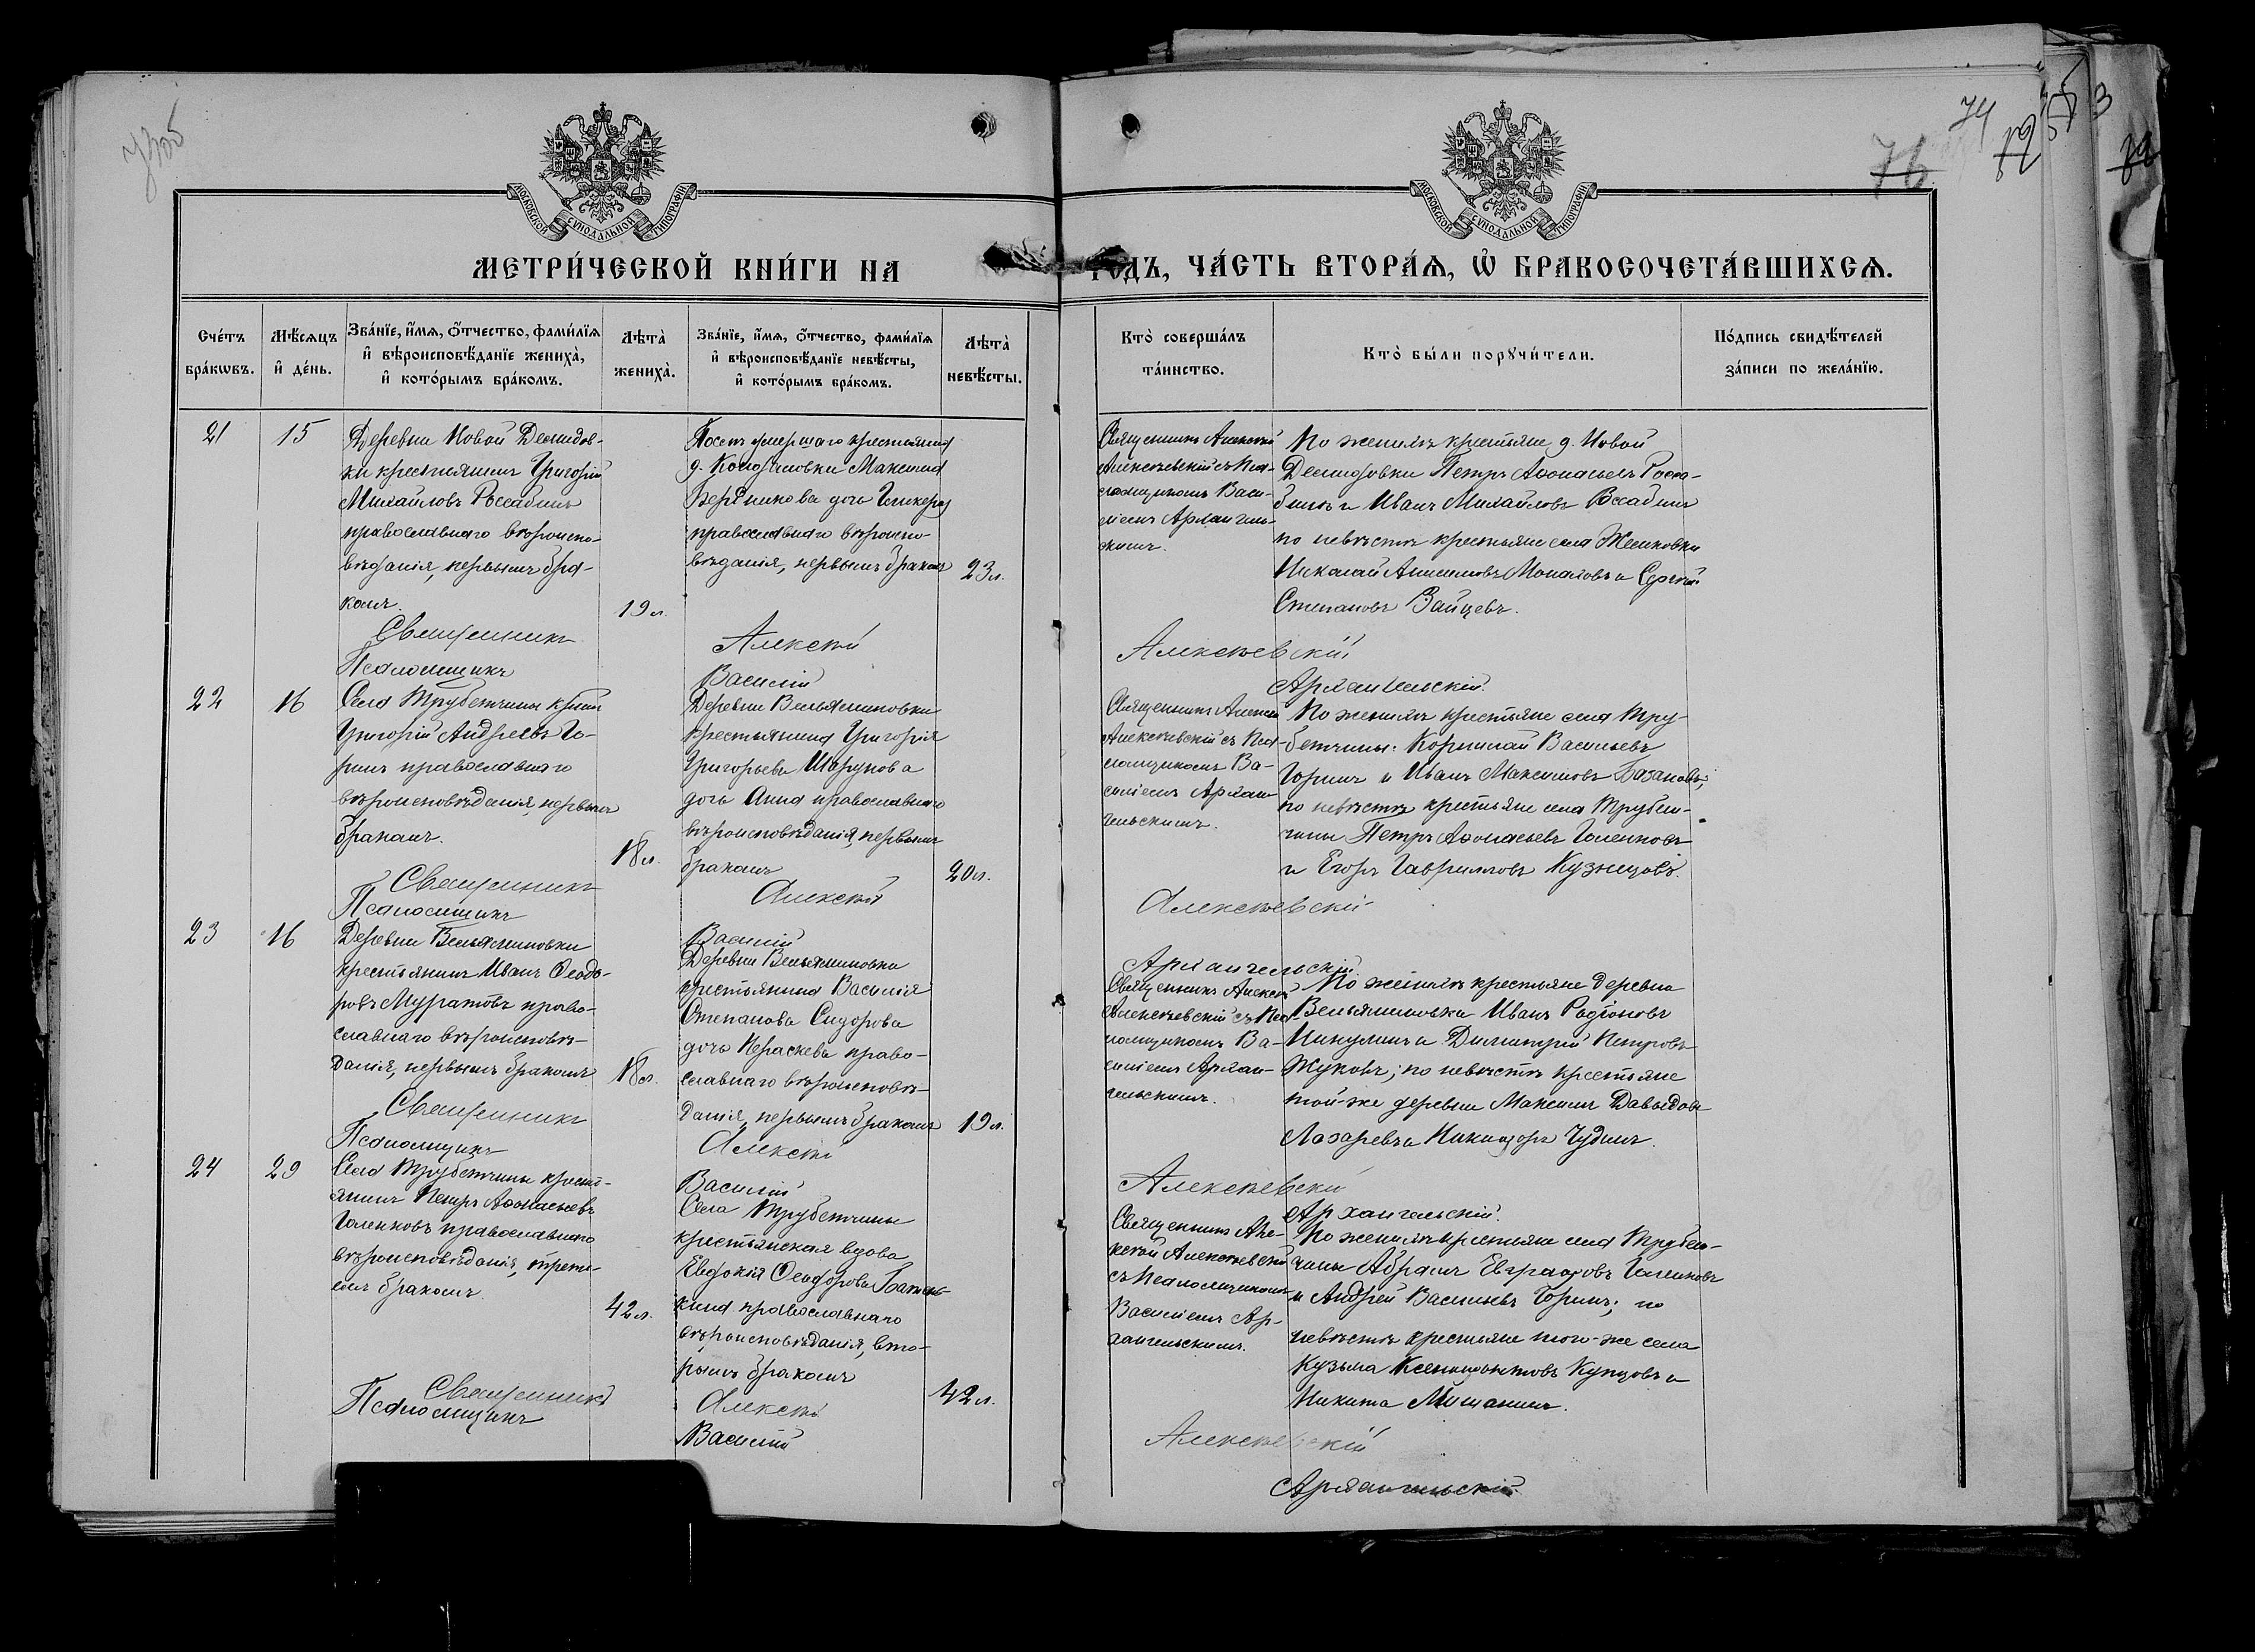 МОСКОВСКОЙ СѴНОДАЛЬНОЙ ТИПОГРАФІИ
МЕТРИ́ЧЕСКОЙ КНИ́ГИ НА
Сче́тъ бра́кѡвъ.
Мѣ́сяцъ и҆ де́нь.
Зва́нїе, и҆́мѧ, ѻ҆́тчество, фами́лїѧ и҆ вѣроисповѣ́данїе жениха̀, и҆ кото́рымъ бра́комъ.
Лѣта̀ жениха̀.
Зва́нїе, и҆́мѧ, ѻ҆́тчество, фами́лїѧ и҆ вѣроисповѣ́данїе невѣ́сты, и҆ кото́рымъ бра́комъ.
Лѣта̀ невѣ́сты.
21
15
Деревни Новой Демидов-
ки крестьянинъ Григорій
Михайловъ Россабинъ
православнаго вѣроиспо-
вѣданія, первымъ бра-
комъ.
19 л.
умершаго крестьянина
Максима
Бердникова дочь Гликерія
православнаго вѣроиспо-
вѣданія, первымъ бракомъ
23 л.
Священникъ Алексѣй
Псаломщикъ Василій
22
16
Села Трубетчины крест.
Григорій Андреевъ Го-
ринъ православнаго
вѣроисповѣданія, первымъ
бракомъ.
18 л.
Деревни Вельяминовки
крестьянина Григорія
Григорьева Шарунова
дочь Анна православнаго
вѣроисповѣданія, первымъ
бракомъ
20 л.
Священникъ Алексѣй
Псаломщикъ Василій
23
16
Деревни Вельяминовки
крестьянинъ Иванъ Ѳеодо-
ровъ Муратовъ право-
славнаго вѣроисповѣ-
данія, первымъ бракомъ
18 л.
Деревни Вельяминовки
крестьянина Василія
Степанова Сидорова
дочь Параскева право-
славнаго вѣроисповѣ-
данія, первымъ бракомъ
19 л.
Священникъ Алексѣй
Псаломщикъ Василій
24
29
Села Трубетчины кресть-
янинъ Петръ Аѳонасьевъ
Голенковъ православнаго
вѣроисповѣданія, треть-
имъ бракомъ.
42 л.
Села Трубетчины
крестьянская вдова
Евдокія Ѳеодорова
православнаго
вѣроисповѣданія, вто-
рымъ бракомъ
42 л.
Священникъ Алексѣй
Псаломщикъ Василій
74
76
МОСКОВСКОЙ СѴНОДАЛЬНОЙ ТИПОГРАФІИ
ГОДЪ, ЧА́СТЬ ВТОРА́Ѧ, Ѡ҆ БРАКОСОЧЕТА́ВШИХСѦ.
Кто̀ соверша́лъ та́инство.
Кто̀ бы́ли порꙋчи́тели.
По́дпись свидѣ́телей за́писи по жела́нїю.
Священникъ Алексѣй
Алексѣевскій съ Пса-
ломщикомъ Васи-
ліемъ Архангель-
скимъ.
По женихѣ крестьяне д. Новой
Демидовки Петръ Аѳонасьевъ Росса-
бинъ и Иванъ Михайловъ Россабинъ
по невѣстѣ крестьяне села
Николай Анисимовъ и Сергѣй
Степановъ Зайцевъ.
Алексѣевскій
Архангельскій.
Священникъ Алексѣй
Алексѣевскій съ Пса-
ломщикомъ Ва-
силіемъ Архан-
гельскимъ.
По женихѣ крестьяне села Тру-
бетчины: Корнилай Васильевъ
Горинъ и Иванъ Максимовъ Базановъ;
по невѣстѣ крестьяне села Трубет-
чины Петръ Аѳонасьевъ Голенковъ
и Егоръ Гавриловъ Кузнецовъ.
Алексѣевскій
Архангельскій
Священникъ Алексѣй
Алексѣевскій съ Пса-
ломщикомъ Ва-
силіемъ Архан-
гельскимъ.
По женихѣ крестьяне деревни
Вельяминовки Иванъ Родіоновъ
Никулинъ и Димитрій Петровъ
Жуковъ; по невѣстѣ крестьяне
той-же деревни Максимъ Давыдовъ
Лазаревъ и Никаноръ Чудинъ.
Алексѣевскій
Архангельскій.
Священникъ Але-
ксѣй Алексѣевскій
съ Псаломщикомъ
Василіемъ Ар-
хангельскимъ.
По женихѣ крестьяне села Трубет-
чины Абрамъ Евграфовъ Голенковъ
и Андрей Васильевъ Горинъ; по
невѣстѣ крестьяне того-же села
Кузьма Купцовъ и
Никита Мошанинъ.
Алексѣевскій
Архангельскій